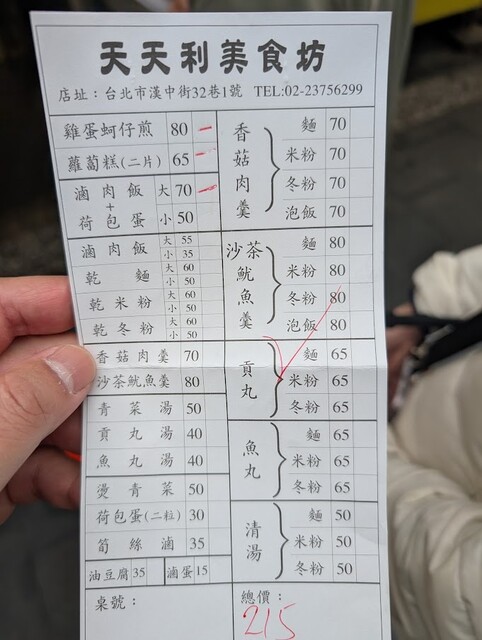 天天利美食坊
店址：台北市漢中街32巷1號 TEL:02-23756299
雞蛋蚵仔煎 80 —
蘿蔔糕(二片) 65 —
滷肉飯 大 70 —
+
荷包蛋 小 50
滷肉飯 大 55
小 35
乾麵 大 60
小 50
乾米粉 大 60
小 50
乾冬粉 大 60
小 50
香菇肉羹 70
沙茶魷魚羹 80
青菜湯 50
貢丸湯 40
魚丸湯 40
燙青菜 50
荷包蛋(二粒) 30
筍絲滷 35
油豆腐 35 滷蛋 15
桌號：
香菇肉羹
麵 70
米粉 70
冬粉 70
泡飯 70
沙茶魷魚羹
麵 80
米粉 80
冬粉 80
泡飯 80
貢丸
麵 65
米粉 65
冬粉 65
魚丸
麵 65
米粉 65
冬粉 65
清湯
麵 50
米粉 50
冬粉 50
總價：
215